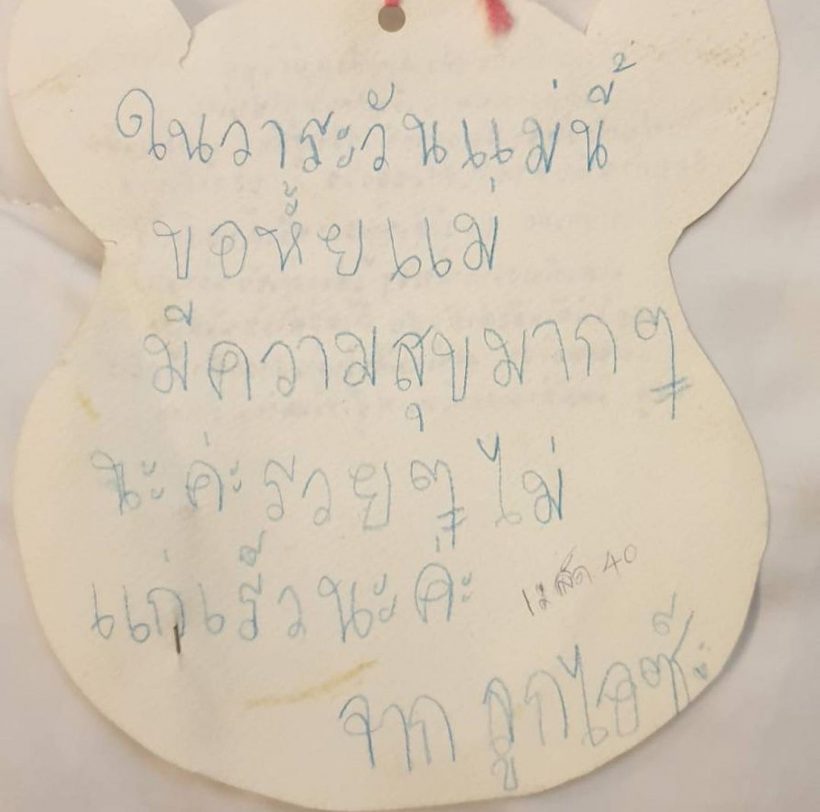 ในวาระวันแม่นี้
ขอหั้ยแม่
มีความสุขมากๆ
นะค่ะรวยๆ ไม่
แก่เร็วนะค่ะ
12 สค 40
จาก ลูก